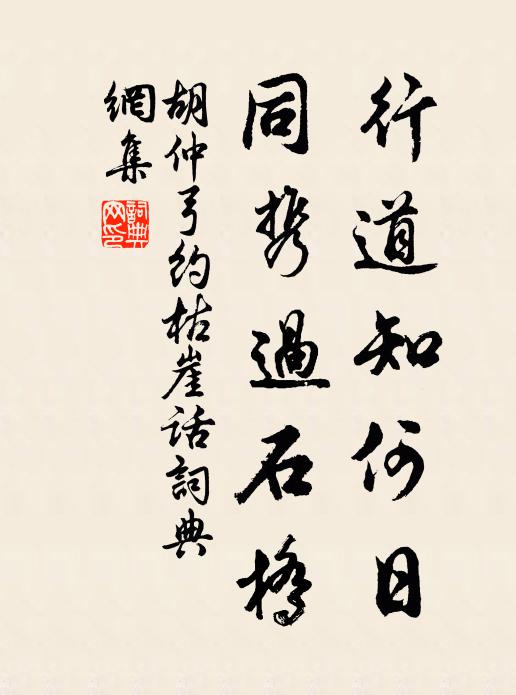 行道知何日
同携過石橋
胡仲弓約枯崖話詞典
網集
詞典網印